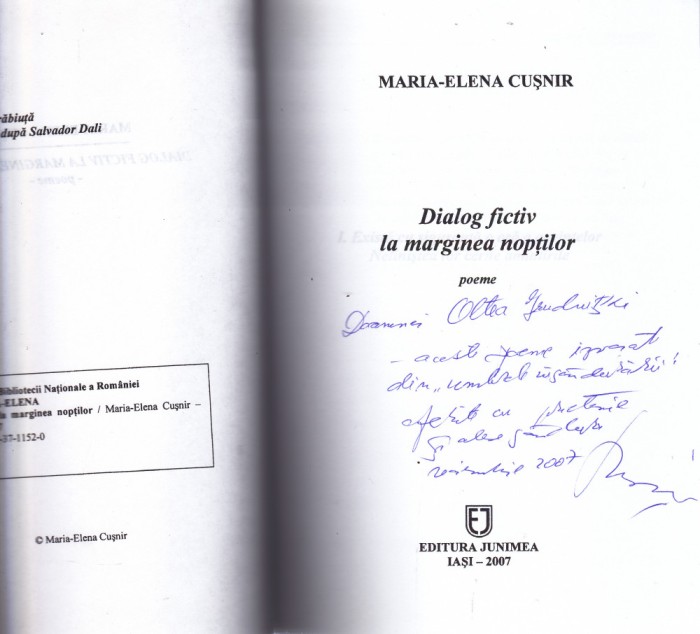 răbiuță
după Salvador Dali
Bibliotecii Naționale a României
-ELENA
la marginea nopților / Maria-Elena Cușnir –
37-1152-0
© Maria-Elena Cușnir
MARIA-ELENA CUȘNIR
Dialog fictiv
la marginea nopților
poeme
Doamnei Oltea
– aceste poeme
din „umbrele îngândurării”!
oferite cu prietenie
și alese gânduri
noiembrie 2007
EJ
EDITURA JUNIMEA
IAȘI – 2007